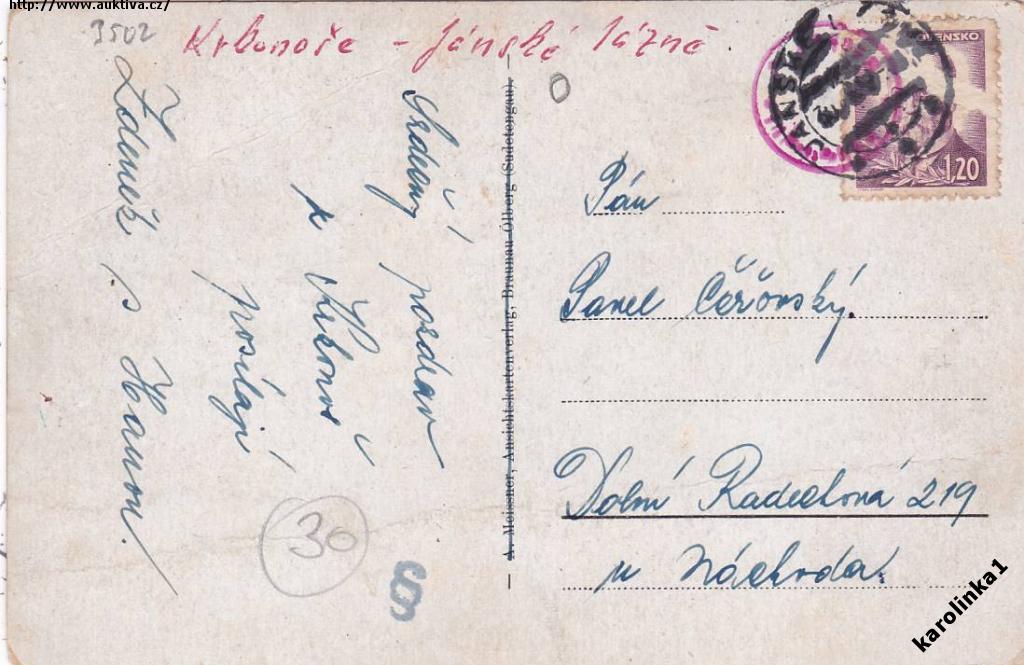 http://www.auktiva.cz/
3502
Krkonoše - Jánské lázně
Srdečný pozdrav
z Krkonoš
posílají
Zdeněk s Hanou.
A. Meissner, Ansichtskartenverlag, Braunau-Ölberg (Sudetengau)
JANSKÉ
OVENSKO
1,20
Pán
Pavel Čeřovský.
Dolní Radechová 219
u Náchoda.
30
karolinka1